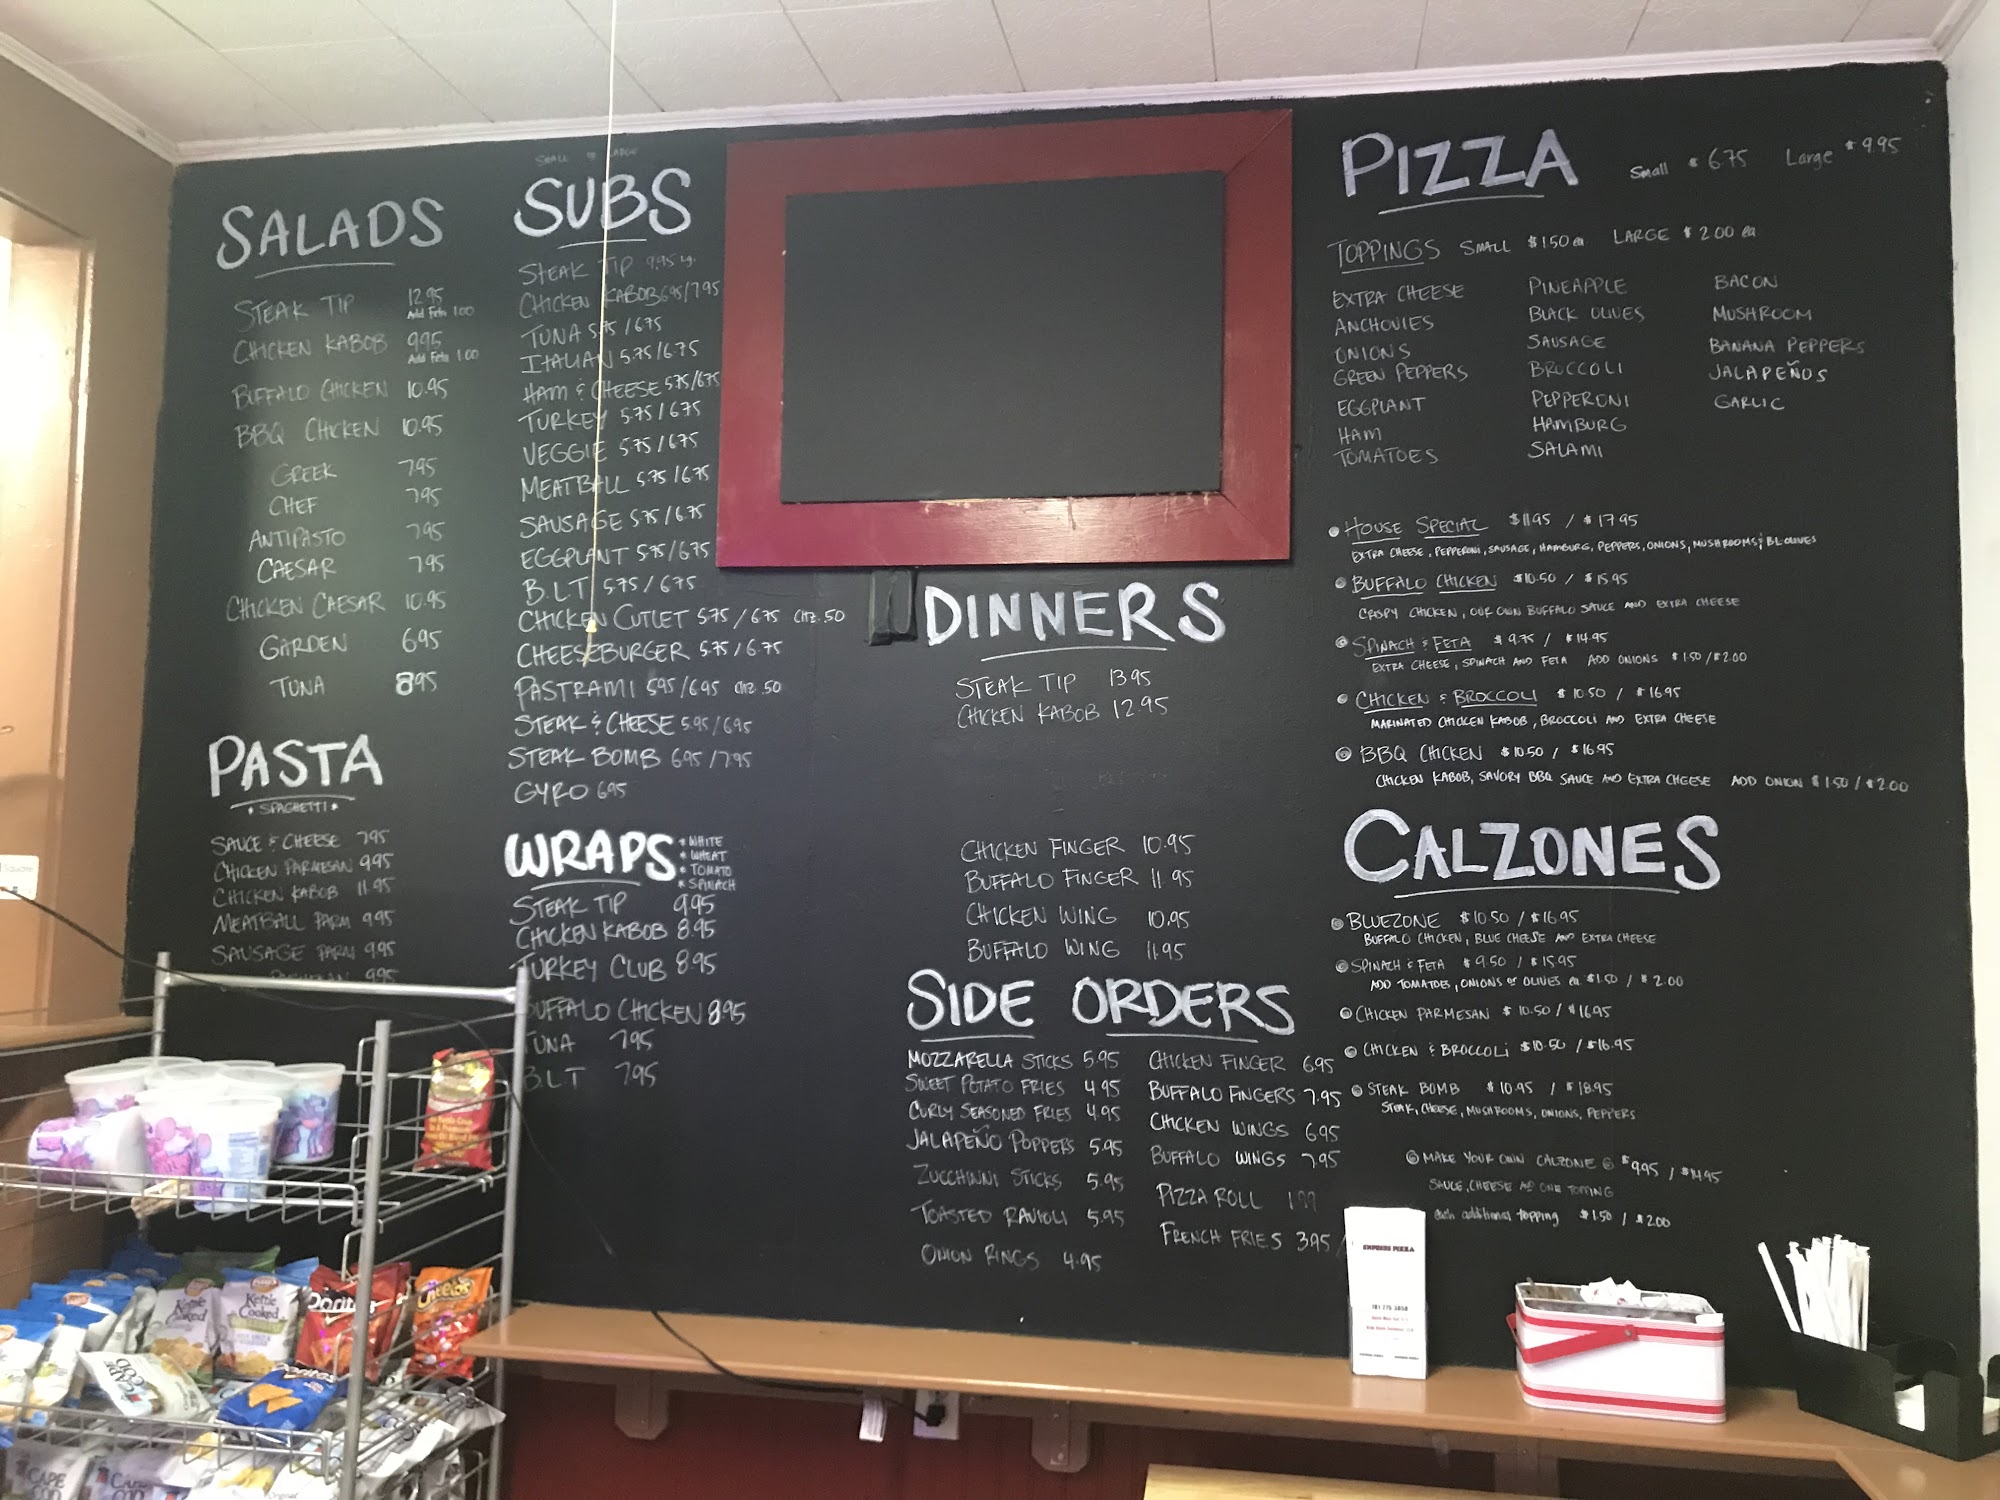 SALADS
STEAK TIP 12.95
Add Feta 1.00
CHICKEN KABOB 9.95
Add Feta 1.00
BUFFALO CHICKEN 10.95
BBQ CHICKEN 10.95
GREEK 7.95
CHEF 7.95
ANTIPASTO 7.95
CAESAR 7.95
CHICKEN CAESAR 10.95
GARDEN 6.95
TUNA 8.95
PASTA
• SPAGHETTI •
SAUCE & CHEESE 7.95
CHICKEN PARMESAN 9.95
CHICKEN KABOB 11.95
MEATBALL PARM 9.95
SAUSAGE PARM 9.95
9.95
SMALL LARGE
SUBS
STEAK TIP 9.95 lg.
CHICKEN KABOB 6.95/7.95
TUNA 5.75/6.75
ITALIAN 5.75/6.75
HAM & CHEESE 5.75/6.75
TURKEY 5.75/6.75
VEGGIE 5.75/6.75
MEATBALL 5.75/6.75
SAUSAGE 5.75/6.75
EGGPLANT 5.75/6.75
B.L.T 5.75/6.75
CHICKEN CUTLET 5.75/6.75 CHZ .50
CHEESEBURGER 5.75/6.75
PASTRAMI 5.95/6.95 CHZ .50
STEAK & CHEESE 5.95/6.95
STEAK BOMB 6.95/7.95
GYRO 6.95
WRAPS
* WHITE
* WHEAT
* TOMATO
* SPINACH
STEAK TIP 9.95
CHICKEN KABOB 8.95
TURKEY CLUB 8.95
BUFFALO CHICKEN 8.95
TUNA 7.95
B.L.T 7.95
DINNERS
STEAK TIP 13.95
CHICKEN KABOB 12.95
CHICKEN FINGER 10.95
BUFFALO FINGER 11.95
CHICKEN WING 10.95
BUFFALO WING 11.95
SIDE ORDERS
MOZZARELLA STICKS 5.95
SWEET POTATO FRIES 4.95
CURLY SEASONED FRIES 4.95
JALAPEÑO POPPERS 5.95
ZUCCHINNI STICKS 5.95
TOASTED RAVIOLI 5.95
ONION RINGS 4.95
CHICKEN FINGER 6.95
BUFFALO FINGERS 7.95
CHICKEN WINGS 6.95
BUFFALO WINGS 7.95
PIZZA ROLL
FRENCH FRIES 3.95 /
PIZZA Small $6.75 Large $9.95
TOPPINGS SMALL $1.50 ea LARGE $2.00 ea
EXTRA CHEESE
ANCHOVIES
ONIONS
GREEN PEPPERS
EGGPLANT
HAM
TOMATOES
PINEAPPLE
BLACK OLIVES
SAUSAGE
BROCCOLI
PEPPERONI
HAMBURG
SALAMI
BACON
MUSHROOM
BANANA PEPPERS
JALAPEÑOS
GARLIC
HOUSE SPECIAL $11.95 / $17.95
EXTRA CHEESE, PEPPERONI, SAUSAGE, HAMBURG, PEPPERS, ONIONS, MUSHROOMS, & BL OLIVES
BUFFALO CHICKEN $10.50 / $15.95
CRISPY CHICKEN, OUR OWN BUFFALO SAUCE AND EXTRA CHEESE
SPINACH & FETA $9.75 / $14.95
EXTRA CHEESE, SPINACH AND FETA ADD ONIONS $1.50/$2.00
CHICKEN & BROCCOLI $10.50 / $16.95
MARINATED CHICKEN KABOB, BROCCOLI AND EXTRA CHEESE
BBQ CHICKEN $10.50 / $16.95
CHICKEN KABOB, SAVORY BBQ SAUCE AND EXTRA CHEESE ADD ONION $1.50 / $2.00
CALZONES
BLUEZONE $10.50 / $16.95
BUFFALO CHICKEN, BLUE CHEESE AND EXTRA CHEESE
SPINACH & FETA $9.50 / $15.95
ADD TOMATOES, ONIONS or OLIVES ea $1.50 / $2.00
CHICKEN PARMESAN $10.50 / $16.95
CHICKEN & BROCCOLI $10.50 / $16.95
STEAK BOMB $10.95 / $18.95
STEAK, CHEESE, MUSHROOMS, ONIONS, PEPPERS
MAKE YOUR OWN CALZONE $9.95 / $14.95
SAUCE, CHEESE AND ONE TOPPING
each additional topping $1.50 / $2.00
EXPRESS PIZZA
Kettle Cooked
Kettle Cooked
Doritos
Cheetos
CAPE COD
Doritos
CAPE COD
CAPE COD